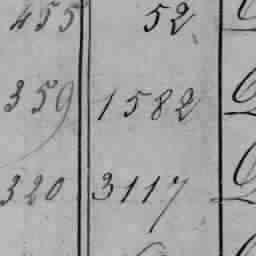 455 52
359 1582
320 3117